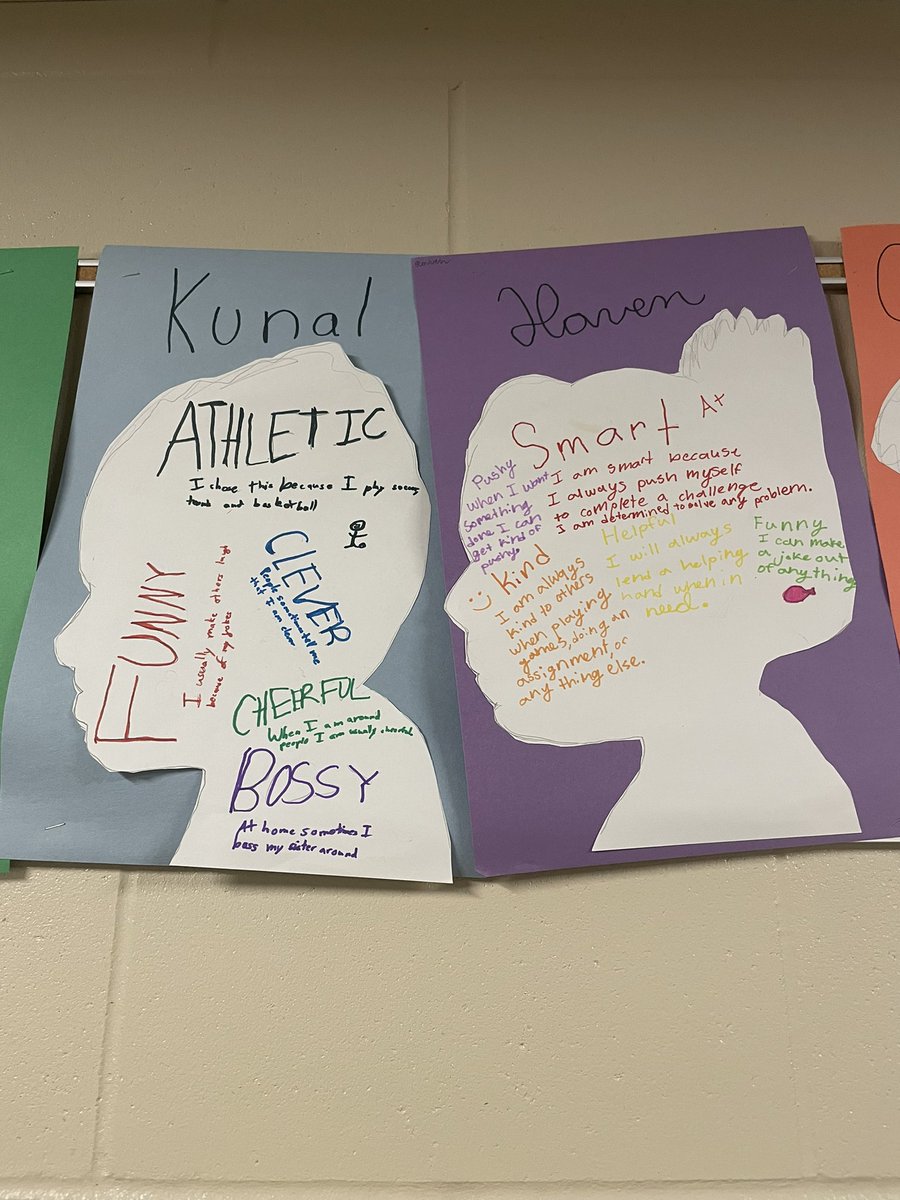 Kunal
ATHLETIC
I chose this because I play soccer,
and basketball
CLEVER
People sometimes tell me
that I am clever
FUNNY
I usually make others laugh
because of my jokes
CHEERFUL
When I am around
people I am usually cheerful
BOSSY
At home sometimes I
boss my sister around
Haven
Smart A+
I am smart because
I always push myself
to complete a challenge
I am determined to solve any problem.
Pushy
when I want
something
done I can
get kind of
pushy.
Kind
I am always
kind to others
when playing
games, doing an
assignment, or
any thing else.
Helpful
I will always
lend a helping
hand when in
need.
Funny
I can make
a joke out
of anything